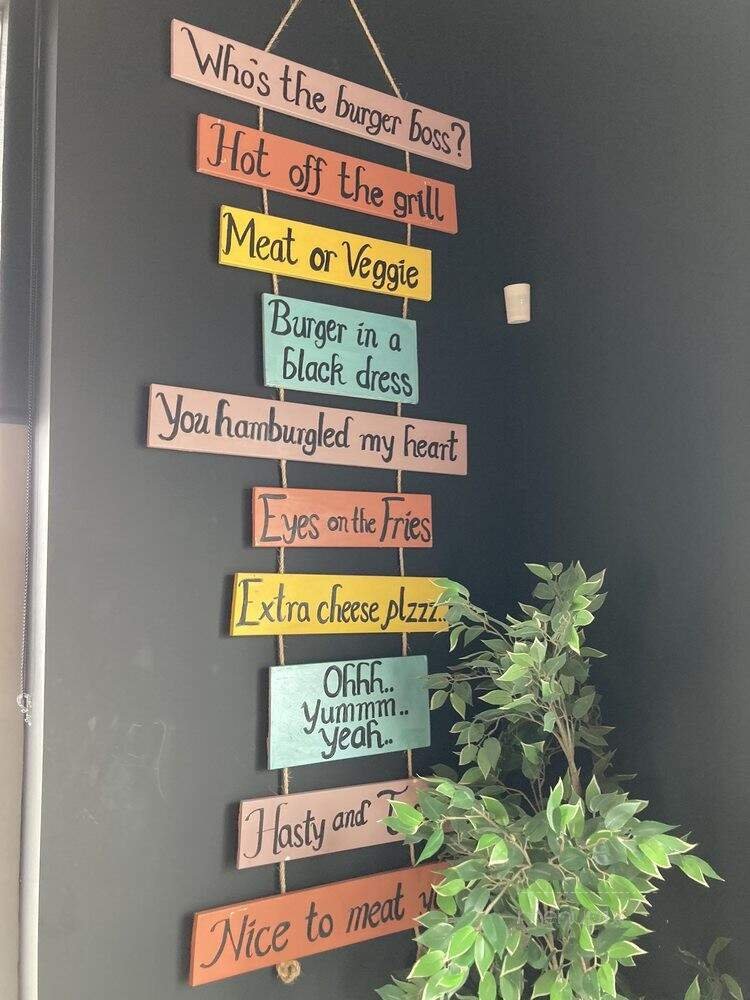 Who's the burger boss?
Hot off the grill
Meat or Veggie
Burger in a
black dress
You hamburgled my heart
Eyes on the Fries
Extra cheese plzzz..
Ohhh..
yummm..
yeah..
Hasty and
Nice to meat